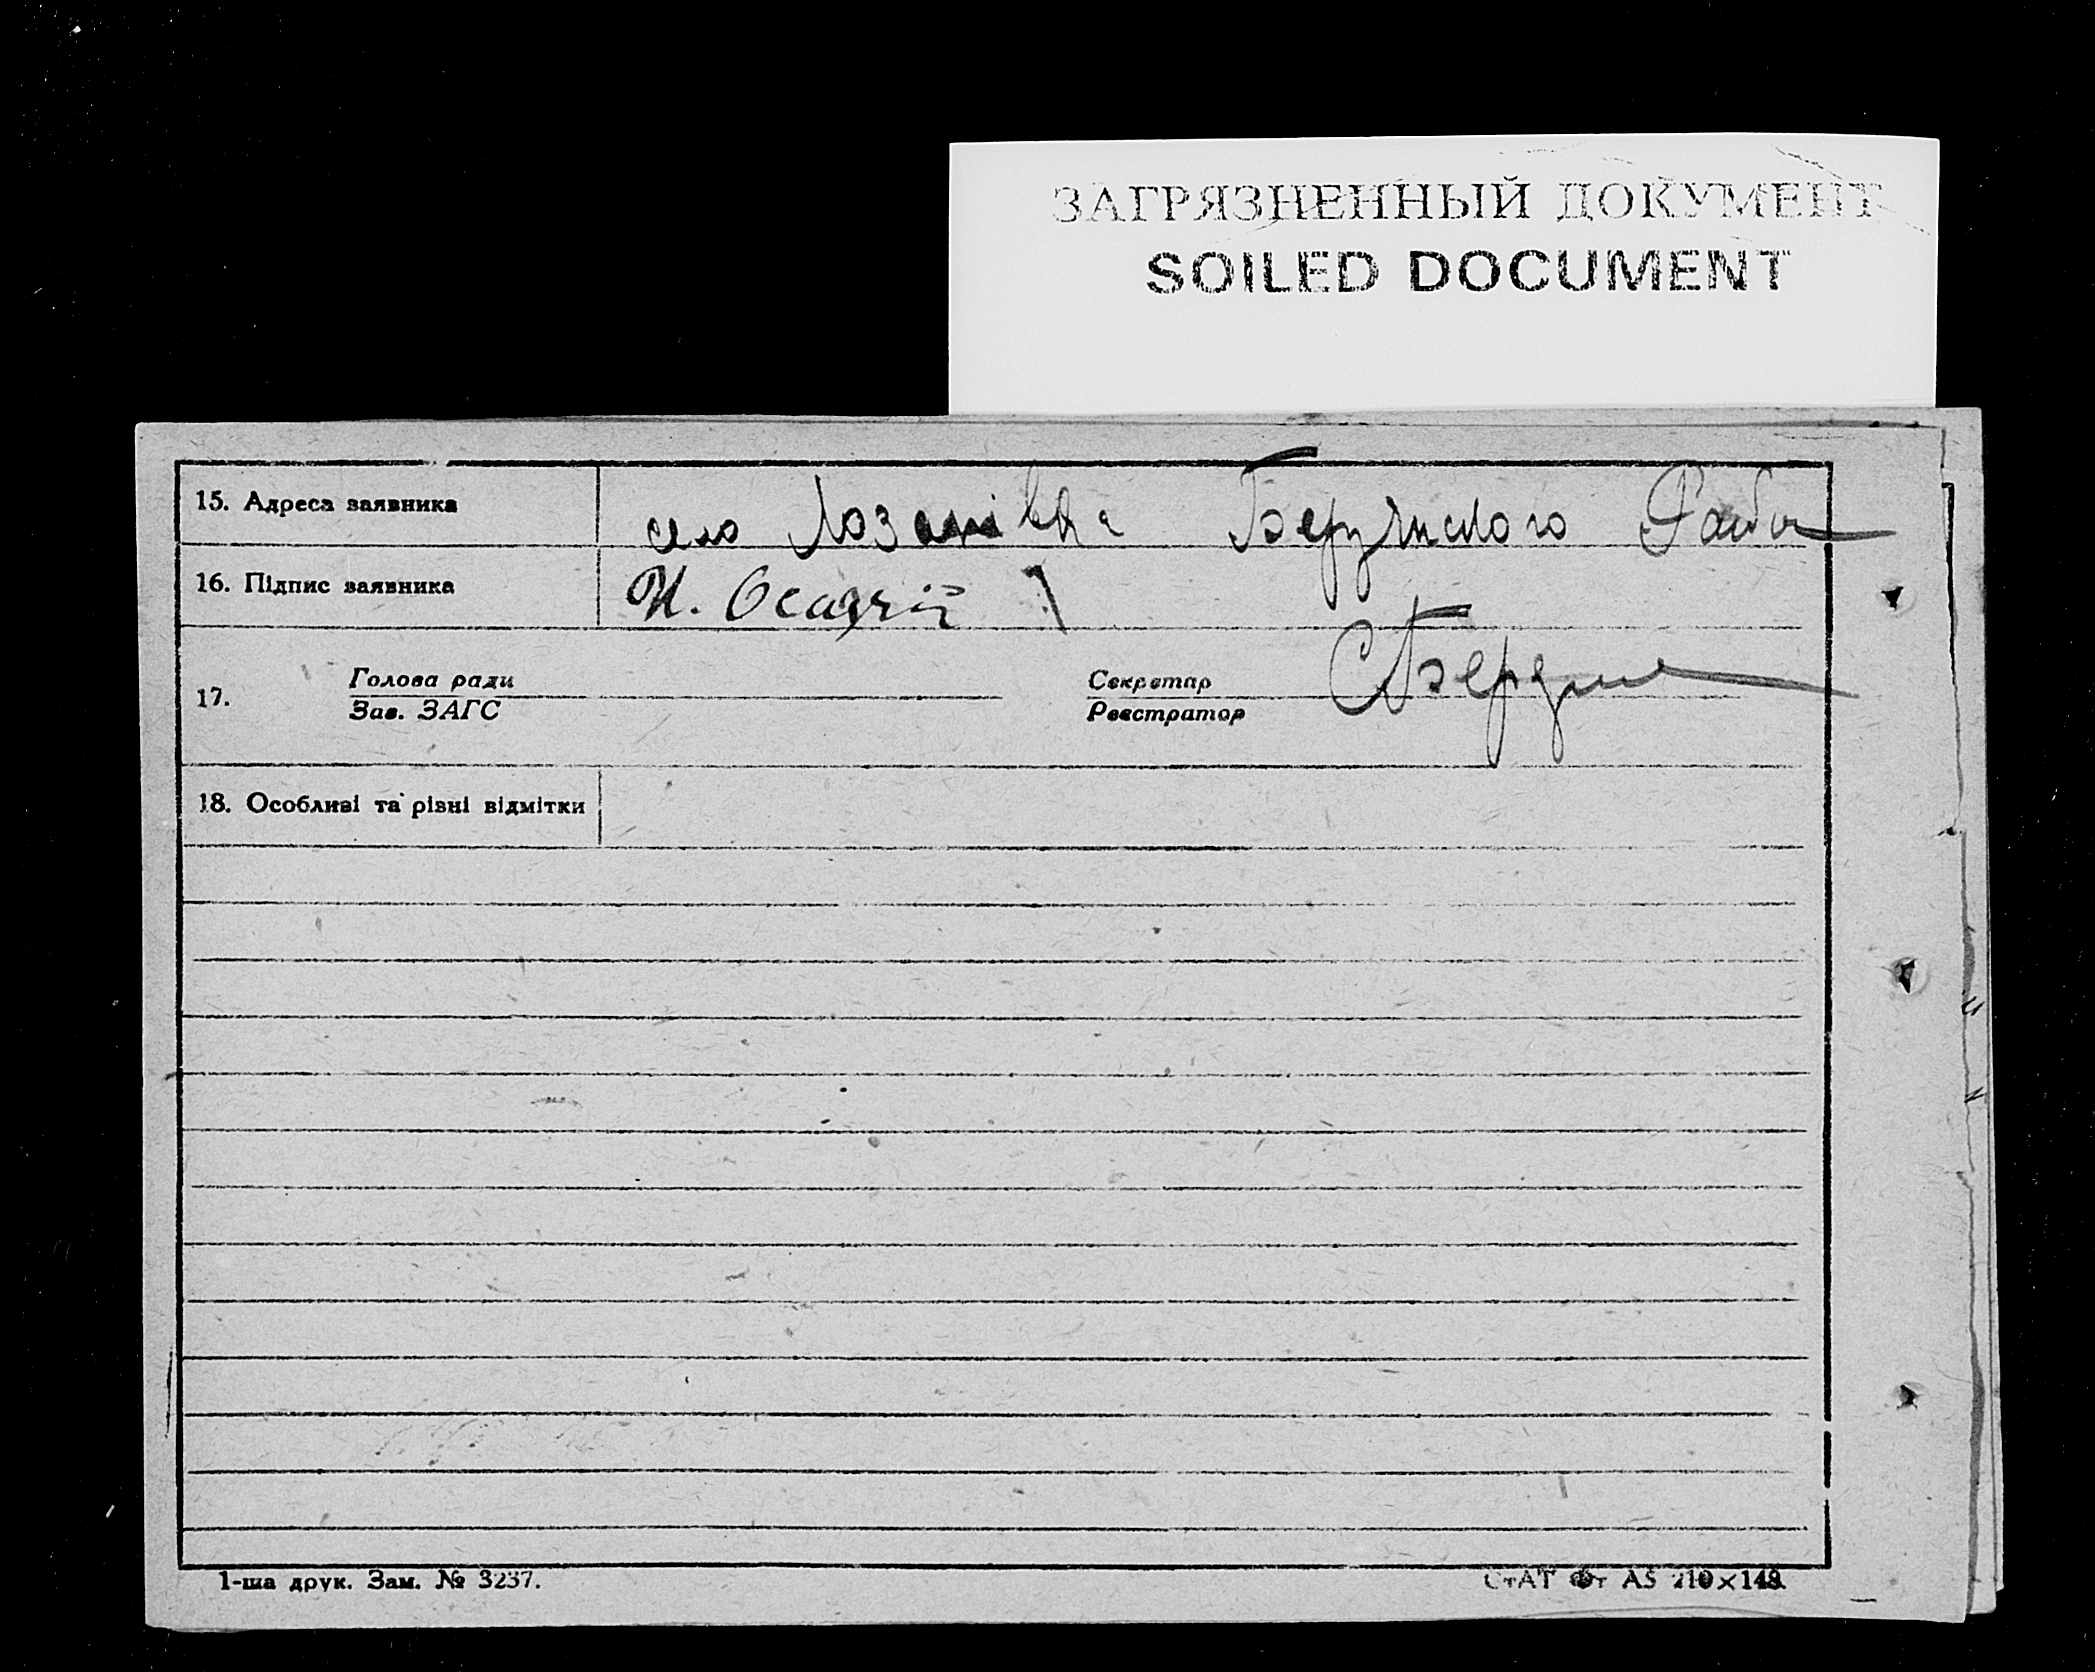 ЗАГРЯЗНЕННЫЙ ДОКУМЕНТ
SOILED DOCUMENT
15. Адреса заявника село
16. Підпис заявника Н. Осадчій
17. Голова ради Зав. ЗАГС Секретар Реєстратор
18. Особливі та різні відмітки
1-ша друк. Зам. № 3237.
СтАТ Фт А5 210×148.